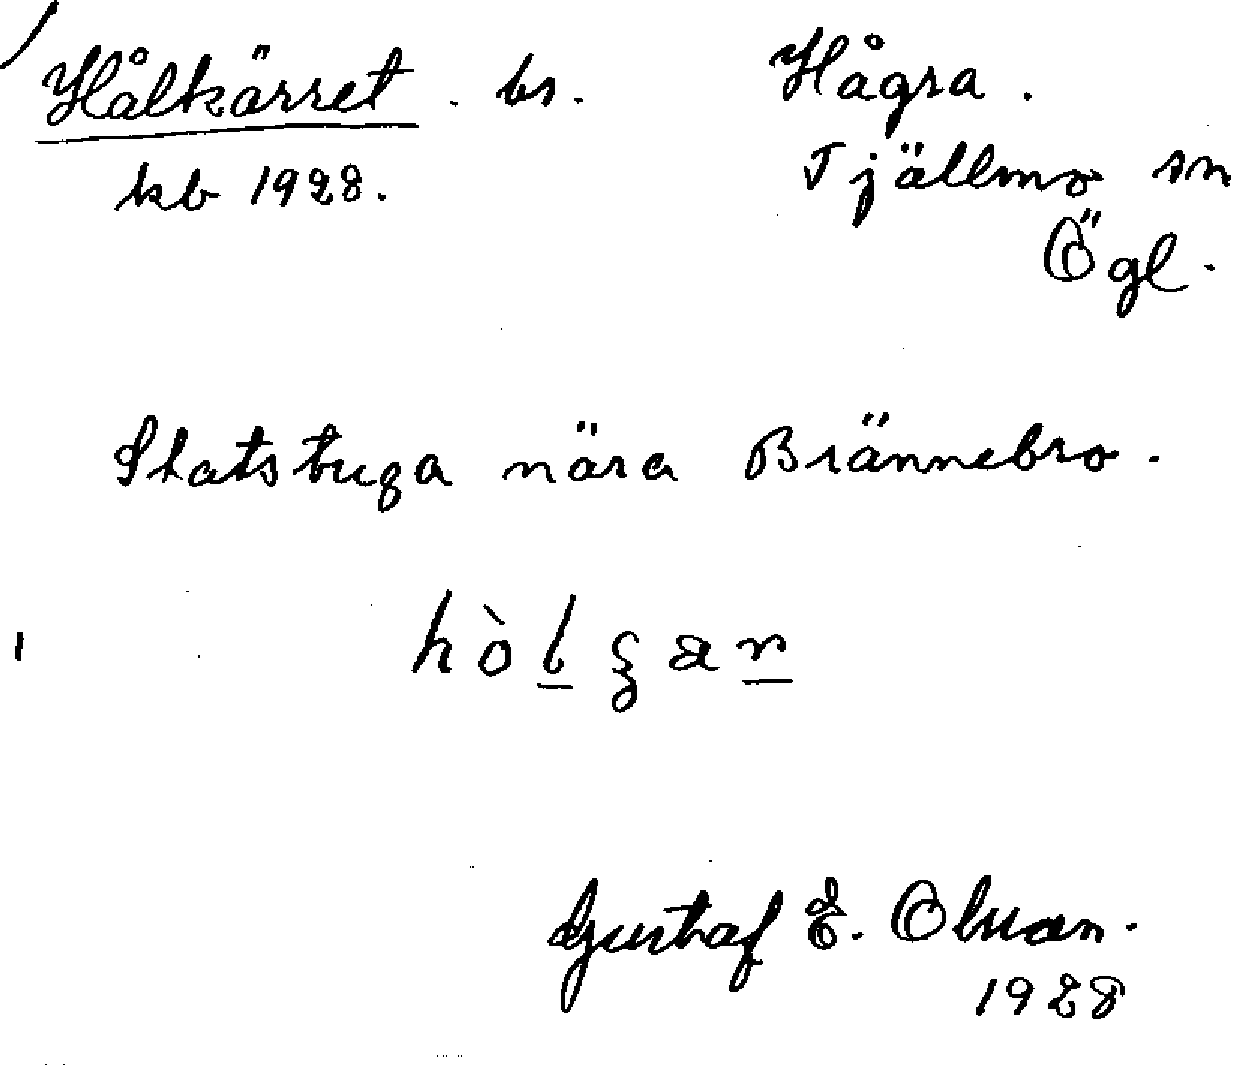 Hålkärret. bs. Hågra.
kb 1928. Tjällmo sn
Ögl.
Statstuga nära Brännebro.
Gustaf E. Olson.
1928